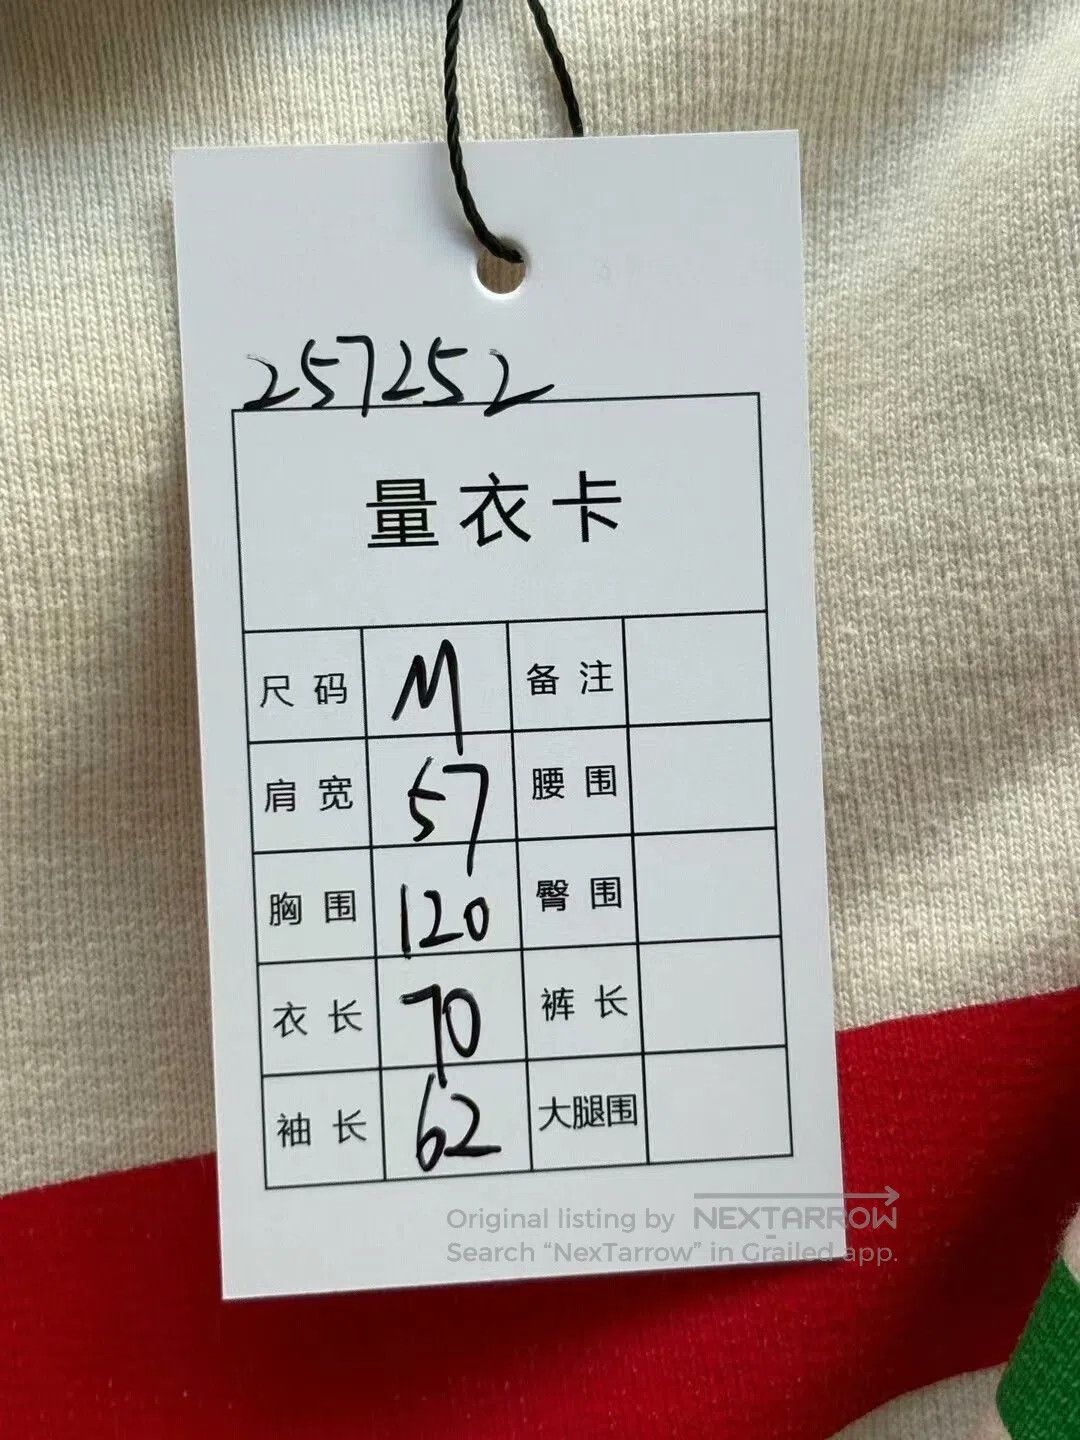 257252
量衣卡
尺码 M 备注
肩宽 57 腰围
胸围 120 臀围
衣长 70 裤长
袖长 62 大腿围
Original listing by NEXTARROW
Search “NexTarrow” in Grailed app.